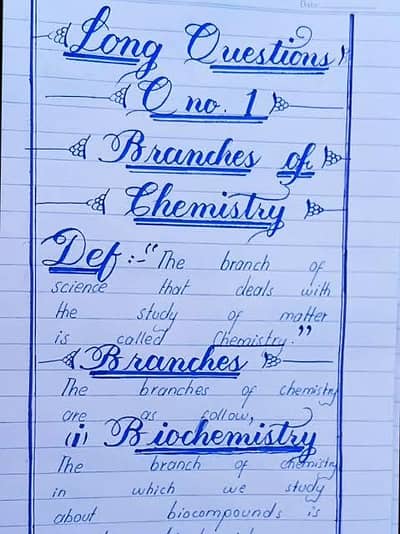 Date:
Long Questions
Q no. 1
Branches of
Chemistry
Def :- "The branch of
science that deals with
the study of matter
is called Chemistry."
Branches
The branches of chemistry
are as follow,
(i) Biochemistry
The branch of chemistry
in which we study
about biocompounds is